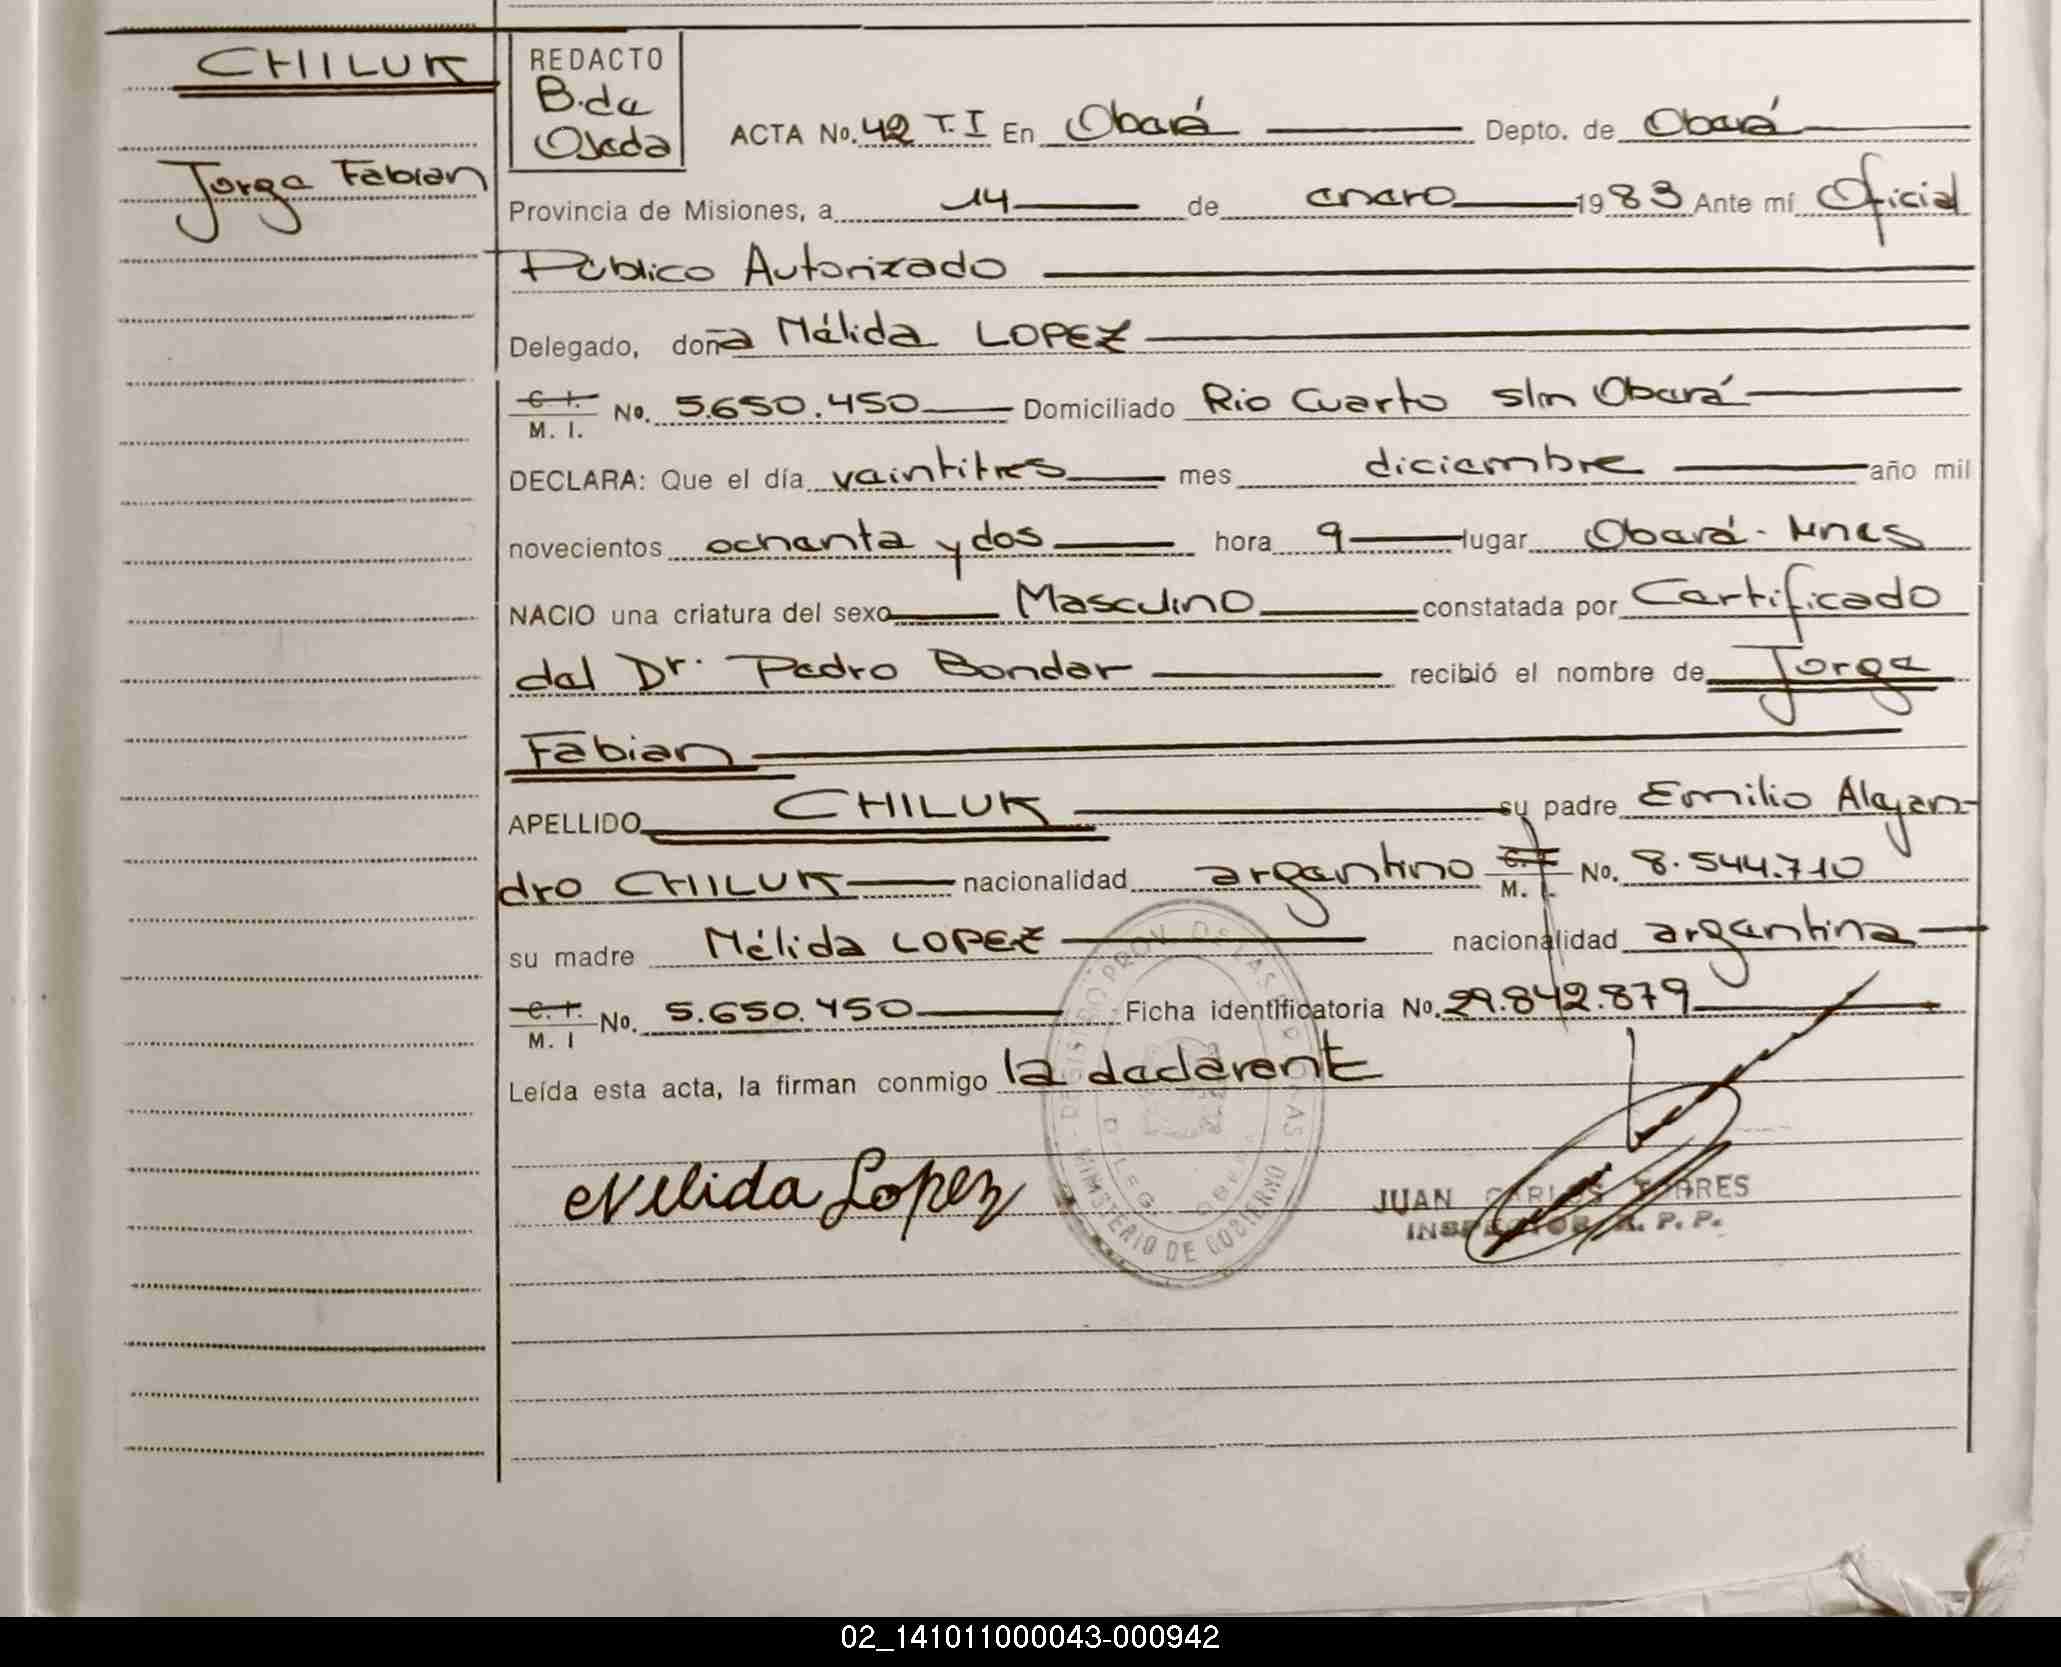 CHILUK
Jorge Fabian
REDACTO
B. de
Ojeda
ACTA No. 42 T. I En Oberá Depto. de Oberá
Provincia de Misiones, a 14 de enero 1983 Ante mí Oficial
Público Autorizado
Delegado, doña Nélida LOPEZ
C. I.
M. I. No. 5.650.450 Domiciliado Rio Cuarto s/n Oberá
DECLARA: Que el día veintitres mes diciembre año mil
novecientos ochenta y dos hora 9 lugar Oberá - Mnes
NACIO una criatura del sexo Masculino constatada por Certificado
del Dr. Pedro Bondar recibió el nombre de Jorge
Fabian
APELLIDO CHILUK su padre Emilio Alejan-
dro CHILUK nacionalidad argentino C. I. M. I. No. 8.544.710
su madre Nélida LOPEZ nacionalidad argentina
C. I.
M. I No. 5.650.450 Ficha identificatoria No. 29.842.879
Leída esta acta, la firman conmigo la declarante
Nelida Lopez
JUAN CARLOS TORRES
INSPECTOR R. P. P.
MINISTERIO DE GOBIERNO
02_141011000043-000942